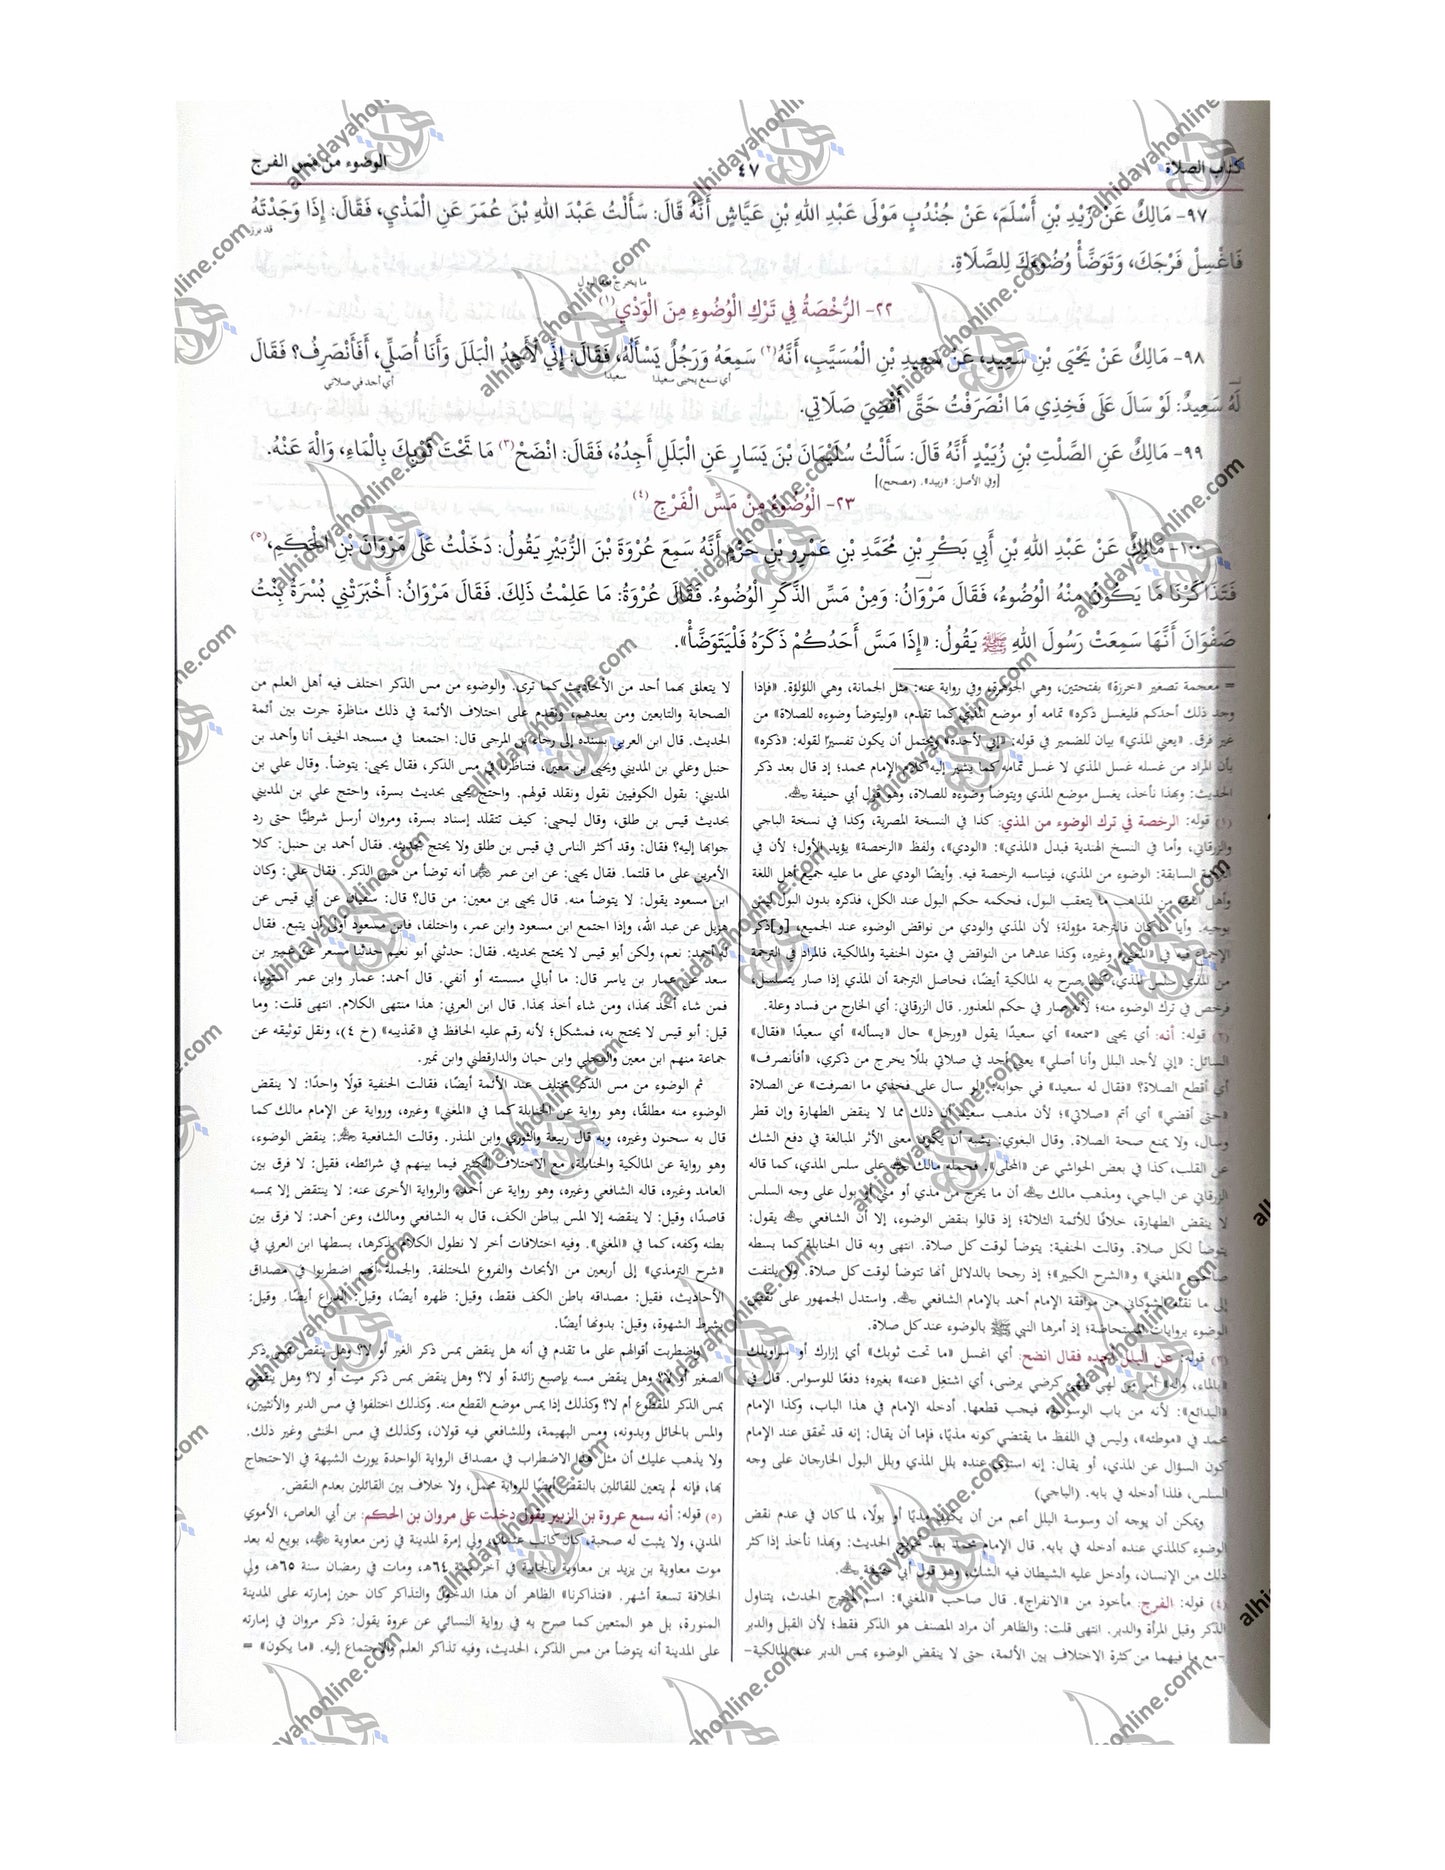 كتاب الصلاة
٤٧
الوضوء من مس الفرج
٩٧- مَالِكٌ عَنْ زَيْدِ بْنِ أَسْلَمَ، عَنْ جُنْدُبٍ مَوْلَى عَبْدِ اللهِ بْنِ عَيَّاشٍ أَنَّهُ قَالَ: سَأَلْتُ عَبْدَ اللهِ بْنَ عُمَرَ عَنِ الْمَذْيِ، فَقَالَ: إِذَا وَجَدْتَهُ
فَاغْسِلْ فَرْجَكَ، وَتَوَضَّأْ وُضُوءَكَ لِلصَّلَاةِ.
ما يخرج بعد البول
٢٢- الرُّخْصَةُ فِي تَرْكِ الْوُضُوءِ مِنَ الْوَدْيِ (١)
٩٨- مَالِكٌ عَنْ يَحْيَى بْنِ سَعِيدٍ، عَنْ سَعِيدِ بْنِ الْمُسَيَّبِ، أَنَّهُ(٢) سَمِعَهُ وَرَجُلٌ يَسْأَلُهُ، فَقَالَ: إِنِّي لَأَجِدُ الْبَلَلَ وَأَنَا أُصَلِّي، أَفَأَنْصَرِفُ؟ فَقَالَ
أي سمع يحيى سعيدا سعيدا أي أحد في صلاتي
لَهُ سَعِيدٌ: لَوْ سَالَ عَلَى فَخِذِي مَا انْصَرَفْتُ حَتَّى أَقْضِيَ صَلَاتِي.
٩٩- مَالِكٌ عَنِ الصَّلْتِ بْنِ زُيَيْدٍ أَنَّهُ قَالَ: سَأَلْتُ سُلَيْمَانَ بْنَ يَسَارٍ عَنِ الْبَلَلِ أَجِدُهُ، فَقَالَ: انْضَحْ(٣) مَا تَحْتَ ثَوْبِكَ بِالْمَاءِ، وَالْهَ عَنْهُ.
[وفي الأصل: «زبيد». (مصحح)]
٢٣- الْوُضُوءُ مِنْ مَسِّ الْفَرْجِ (٤)
١٠٠- مَالِكٌ عَنْ عَبْدِ اللهِ بْنِ أَبِي بَكْرِ بْنِ مُحَمَّدِ بْنِ عَمْرِو بْنِ حَزْمٍ أَنَّهُ سَمِعَ عُرْوَةَ بْنَ الزُّبَيْرِ يَقُولُ: دَخَلْتُ عَلَى مَرْوَانَ بْنِ الْحَكَمِ،(٥)
فَتَذَاكَرْنَا مَا يَكُونُ مِنْهُ الْوُضُوءُ، فَقَالَ مَرْوَانُ: وَمِنْ مَسِّ الذَّكَرِ الْوُضُوءُ. فَقَالَ عُرْوَةُ: مَا عَلِمْتُ ذَلِكَ. فَقَالَ مَرْوَانُ: أَخْبَرَتْنِي بُسْرَةُ بِنْتُ
صَفْوَانَ أَنَّهَا سَمِعَتْ رَسُولَ اللهِ ﷺ يَقُولُ: «إِذَا مَسَّ أَحَدُكُمْ ذَكَرَهُ فَلْيَتَوَضَّأْ».
= معجمة تصغير «خرزة» بفتحتين، وهي الجوهرة، وفي رواية عنه: مثل الجمانة، وهي اللؤلؤة. «فإذا
وجد ذلك أحدكم فليغسل ذكره» تمامه أو موضع المذي كما تقدم، «وليتوضأ وضوءه للصلاة» من
غير فرق. «يعني المذي» بيان للضمير في قوله: «إني لأجده» ويحتمل أن يكون تفسيرًا لقوله: «ذكره»
بأن المراد من غسله غسل المذي لا غسل تمامه كما يشير إليه كلام الإمام محمد؛ إذ قال بعد ذكر
الحديث: وبهذا نأخذ، يغسل موضع المذي ويتوضأ وضوءه للصلاة، وهو قول أبي حنيفة.
(١) قوله: الرخصة في ترك الوضوء من المذي: كذا في النسخة المصرية، وكذا في نسخة الباجي
والزرقاني، وأما في النسخ الهندية فبدل «المذي»: «الودي»، ولفظ «الرخصة» يؤيد الأول؛ لأن في
السابقة: الوضوء من المذي، فيناسبه الرخصة فيه. وأيضًا الودي على ما عليه جميع أهل اللغة
وأهل الفقه من المذاهب ما يتعقب البول، فحكمه حكم البول عند الكل، فذكره بدون البول ليس
بوجيه. وأيا ما كان فالترجمة مؤولة؛ لأن المذي والودي من نواقض الوضوء عند الجميع، [و]ذكر
الإجماع فيه في «المغني» وغيره، وكذا عدهما من النواقض في متون الحنفية والمالكية، فالمراد في الترجمة
من المذي سلس المذي، كما صرح به المالكية أيضًا، فحاصل الترجمة أن المذي إذا صار يتسلسل،
فرخص في ترك الوضوء منه؛ لأنه صار في حكم المعذور. قال الزرقاني: أي الخارج من فساد وعلة.
(٢) قوله: أنه: أي يحيى «سمعه» أي سعيدًا يقول «ورجل» حال «يسأله» أي سعيدًا «فقال»
السائل: «إني لأجد البلل وأنا أصلي» يعني أجد في صلاتي بللًا يخرج من ذكري، «أفأنصرف»
أي أقطع الصلاة؟ «فقال له سعيد» في جوابه: «لو سال على فخذي ما انصرفت» عن الصلاة
«حتى أقضي» أي أتم «صلاتي»؛ لأن مذهب سعيد أن ذلك مما لا ينقض الطهارة وإن قطر
وسال، ولا يمنع صحة الصلاة. وقال البغوي: يشبه أن يكون معنى الأثر المبالغة في دفع الشك
عن القلب، كذا في بعض الحواشي عن «المحلى». فحمله مالك على سلس المذي، كما قاله
الزرقاني عن الباجي، ومذهب مالك أن ما يخرج من مذي أو مني أو بول على وجه السلس
لا ينقض الطهارة، خلافًا للأئمة الثلاثة؛ إذ قالوا بنقض الوضوء، إلا أن الشافعي يقول:
يتوضأ لكل صلاة. وقالت الحنفية: يتوضأ لوقت كل صلاة. انتهى وبه قال الحنابلة كما بسطه
صاحب «المغني» و«الشرح الكبير»؛ إذ رجحا بالدلائل أنها تتوضأ لوقت كل صلاة. ولا يلتفت
إلى ما نقله الشوكاني من موافقة الإمام أحمد بالإمام الشافعي. واستدل الجمهور على نقض
الوضوء بروايات المستحاضة؛ إذ أمرها النبي ﷺ بالوضوء عند كل صلاة.
(٣) قوله: عن البلل أجده فقال انضح: أي اغسل «ما تحت ثوبك» أي إزارك أو سراويلك
«بالماء، واله» أمر من لهي يلهى كرضي يرضى، أي اشتغل «عنه» بغيره؛ دفعًا للوسواس. قال في
«البدائع»: لأنه من باب الوسوسة، فيجب قطعها. أدخله الإمام في هذا الباب، وكذا الإمام
محمد في «موطئه»، وليس في اللفظ ما يقتضي كونه مذيًا، فإما أن يقال: إنه قد تحقق عند الإمام
كون السؤال عن المذي، أو يقال: إنه استوى عنده بلل المذي وبلل البول الخارجان على وجه
السلس، فلذا أدخله في بابه. (الباجي)
ويمكن أن يوجه أن وسوسة البلل أعم من أن يكون مذيًا أو بولًا، لما كان في عدم نقض
الوضوء كالمذي عنده أدخله في بابه. قال الإمام محمد بعد تخريج الحديث: وبهذا نأخذ إذا كثر
ذلك من الإنسان، وأدخل عليه الشيطان فيه الشك، وهو قول أبي حنيفة.
(٤) قوله: الفرج: مأخوذ من «الانفراج». قال صاحب «المغني»: اسم لمخرج الحدث، يتناول
الذكر وقبل المرأة والدبر. انتهى قلت: والظاهر أن مراد المصنف هو الذكر فقط؛ لأن القبل والدبر
-مع ما فيهما من كثرة الاختلاف بين الأئمة، حتى لا ينقض الوضوء بمس الدبر عند المالكية-
لا يتعلق بهما أحد من الأحاديث كما ترى. والوضوء من مس الذكر اختلف فيه أهل العلم من
الصحابة والتابعين ومن بعدهم، وتقدم على اختلاف الأئمة في ذلك مناظرة جرت بين أئمة
الحديث. قال ابن العربي بسنده إلى رجاء بن المرجى قال: اجتمعنا في مسجد الخيف أنا وأحمد بن
حنبل وعلي بن المديني ويحيى بن معين، فتناظرنا في مس الذكر، فقال يحيى: يتوضأ. وقال علي بن
المديني: بقول الكوفيين نقول ونقلد قولهم. واحتج يحيى بحديث بسرة، واحتج علي بن المديني
بحديث قيس بن طلق، وقال ليحيى: كيف تتقلد إسناد بسرة، ومروان أرسل شرطيًّا حتى رد
جوابها إليه؟ فقال: وقد أكثر الناس في قيس بن طلق ولا يحتج بحديثه. فقال أحمد بن حنبل: كلا
الأمرين على ما قلتما. فقال يحيى: عن ابن عمر أنه توضأ من مس الذكر. فقال علي: وكان
ابن مسعود يقول: لا يتوضأ منه. قال يحيى بن معين: من قال؟ قال: سفيان عن أبي قيس عن
هزيل عن عبد الله، وإذا اجتمع ابن مسعود وابن عمر، واختلفا، فابن مسعود أولى أن يتبع. فقال
له أحمد: نعم، ولكن أبو قيس لا يحتج بحديثه. فقال: حدثني أبو نعيم حدثنا مسعر عن عمير بن
سعد عن عمار بن ياسر قال: ما أبالي مسسته أو أنفي. قال أحمد: عمار وابن عمر استويا،
فمن شاء أخذ بهذا، ومن شاء أخذ بهذا. قال ابن العربي: هذا منتهى الكلام. انتهى قلت: وما
قيل: أبو قيس لا يحتج به، فمشكل؛ لأنه رقم عليه الحافظ في «تهذيبه» (خ ٤)، ونقل توثيقه عن
جماعة منهم ابن معين والعجلي وابن حبان والدارقطني وابن نمير.
ثم الوضوء من مس الذكر مختلف عند الأئمة أيضًا، فقالت الحنفية قولًا واحدًا: لا ينقض
الوضوء منه مطلقًا، وهو رواية عن الحنابلة كما في «المغني» وغيره، ورواية عن الإمام مالك كما
قال به سحنون وغيره، وبه قال ربيعة والثوري وابن المنذر. وقالت الشافعية: ينقض الوضوء،
وهو رواية عن المالكية والحنابلة، مع الاختلاف الكثير فيما بينهم في شرائطه، فقيل: لا فرق بين
العامد وغيره، قاله الشافعي وغيره، وهو رواية عن أحمد، والرواية الأخرى عنه: لا ينتقض إلا بمسه
قاصدًا، وقيل: لا ينقضه إلا المس بباطن الكف، قال به الشافعي ومالك، وعن أحمد: لا فرق بين
بطنه وكفه، كما في «المغني». وفيه اختلافات أخر لا نطول الكلام بذكرها، بسطها ابن العربي في
«شرح الترمذي» إلى أربعين من الأبحاث والفروع المختلفة. والجملة أنهم اضطربوا في مصداق
الأحاديث، فقيل: مصداقه باطن الكف فقط، وقيل: ظهره أيضًا، وقيل: الذراع أيضًا. وقيل:
بشرط الشهوة، وقيل: بدونها أيضًا.
واضطربت أقوالهم على ما تقدم في أنه هل ينقض بمس ذكر الغير أو لا؟ وهل ينقض بمس ذكر
الصغير أو لا؟ وهل ينقض مسه بإصبع زائدة أو لا؟ وهل ينقض بمس ذكر ميت أو لا؟ وهل ينقض
بمس الذكر المقطوع أم لا؟ وكذلك إذا يمس موضع القطع منه. وكذلك اختلفوا في مس الدبر والأنثيين،
والمس بالحائل وبدونه، ومس البهيمة، وللشافعي فيه قولان، وكذلك في مس الخنثى وغير ذلك.
ولا يذهب عليك أن مثل هذا الاضطراب في مصداق الرواية الواحدة يورث الشبهة في الاحتجاج
بها، فإنه لم يتعين للقائلين بالنقض أيضًا للرواية محمل، ولا خلاف بين القائلين بعدم النقض.
(٥) قوله: أنه سمع عروة بن الزبير يقول دخلت على مروان بن الحكم: بن أبي العاص، الأموي
المدني، ولا يثبت له صحبة، كان كاتب عثمان، ولي إمرة المدينة في زمن معاوية، بويع له بعد
موت معاوية بن يزيد بن معاوية بالجابية في آخر سنة ٦٤هـ، ومات في رمضان سنة ٦٥هـ، ولي
الخلافة تسعة أشهر. «فتذاكرنا» الظاهر أن هذا الدخول والتذاكر كان حين إمارته على المدينة
المنورة، بل هو المتعين كما صرح به في رواية النسائي عن عروة يقول: ذكر مروان في إمارته
على المدينة أنه يتوضأ من مس الذكر، الحديث، وفيه تذاكر العلم والاجتماع إليه. «ما يكون» =
alhidayahonline.com